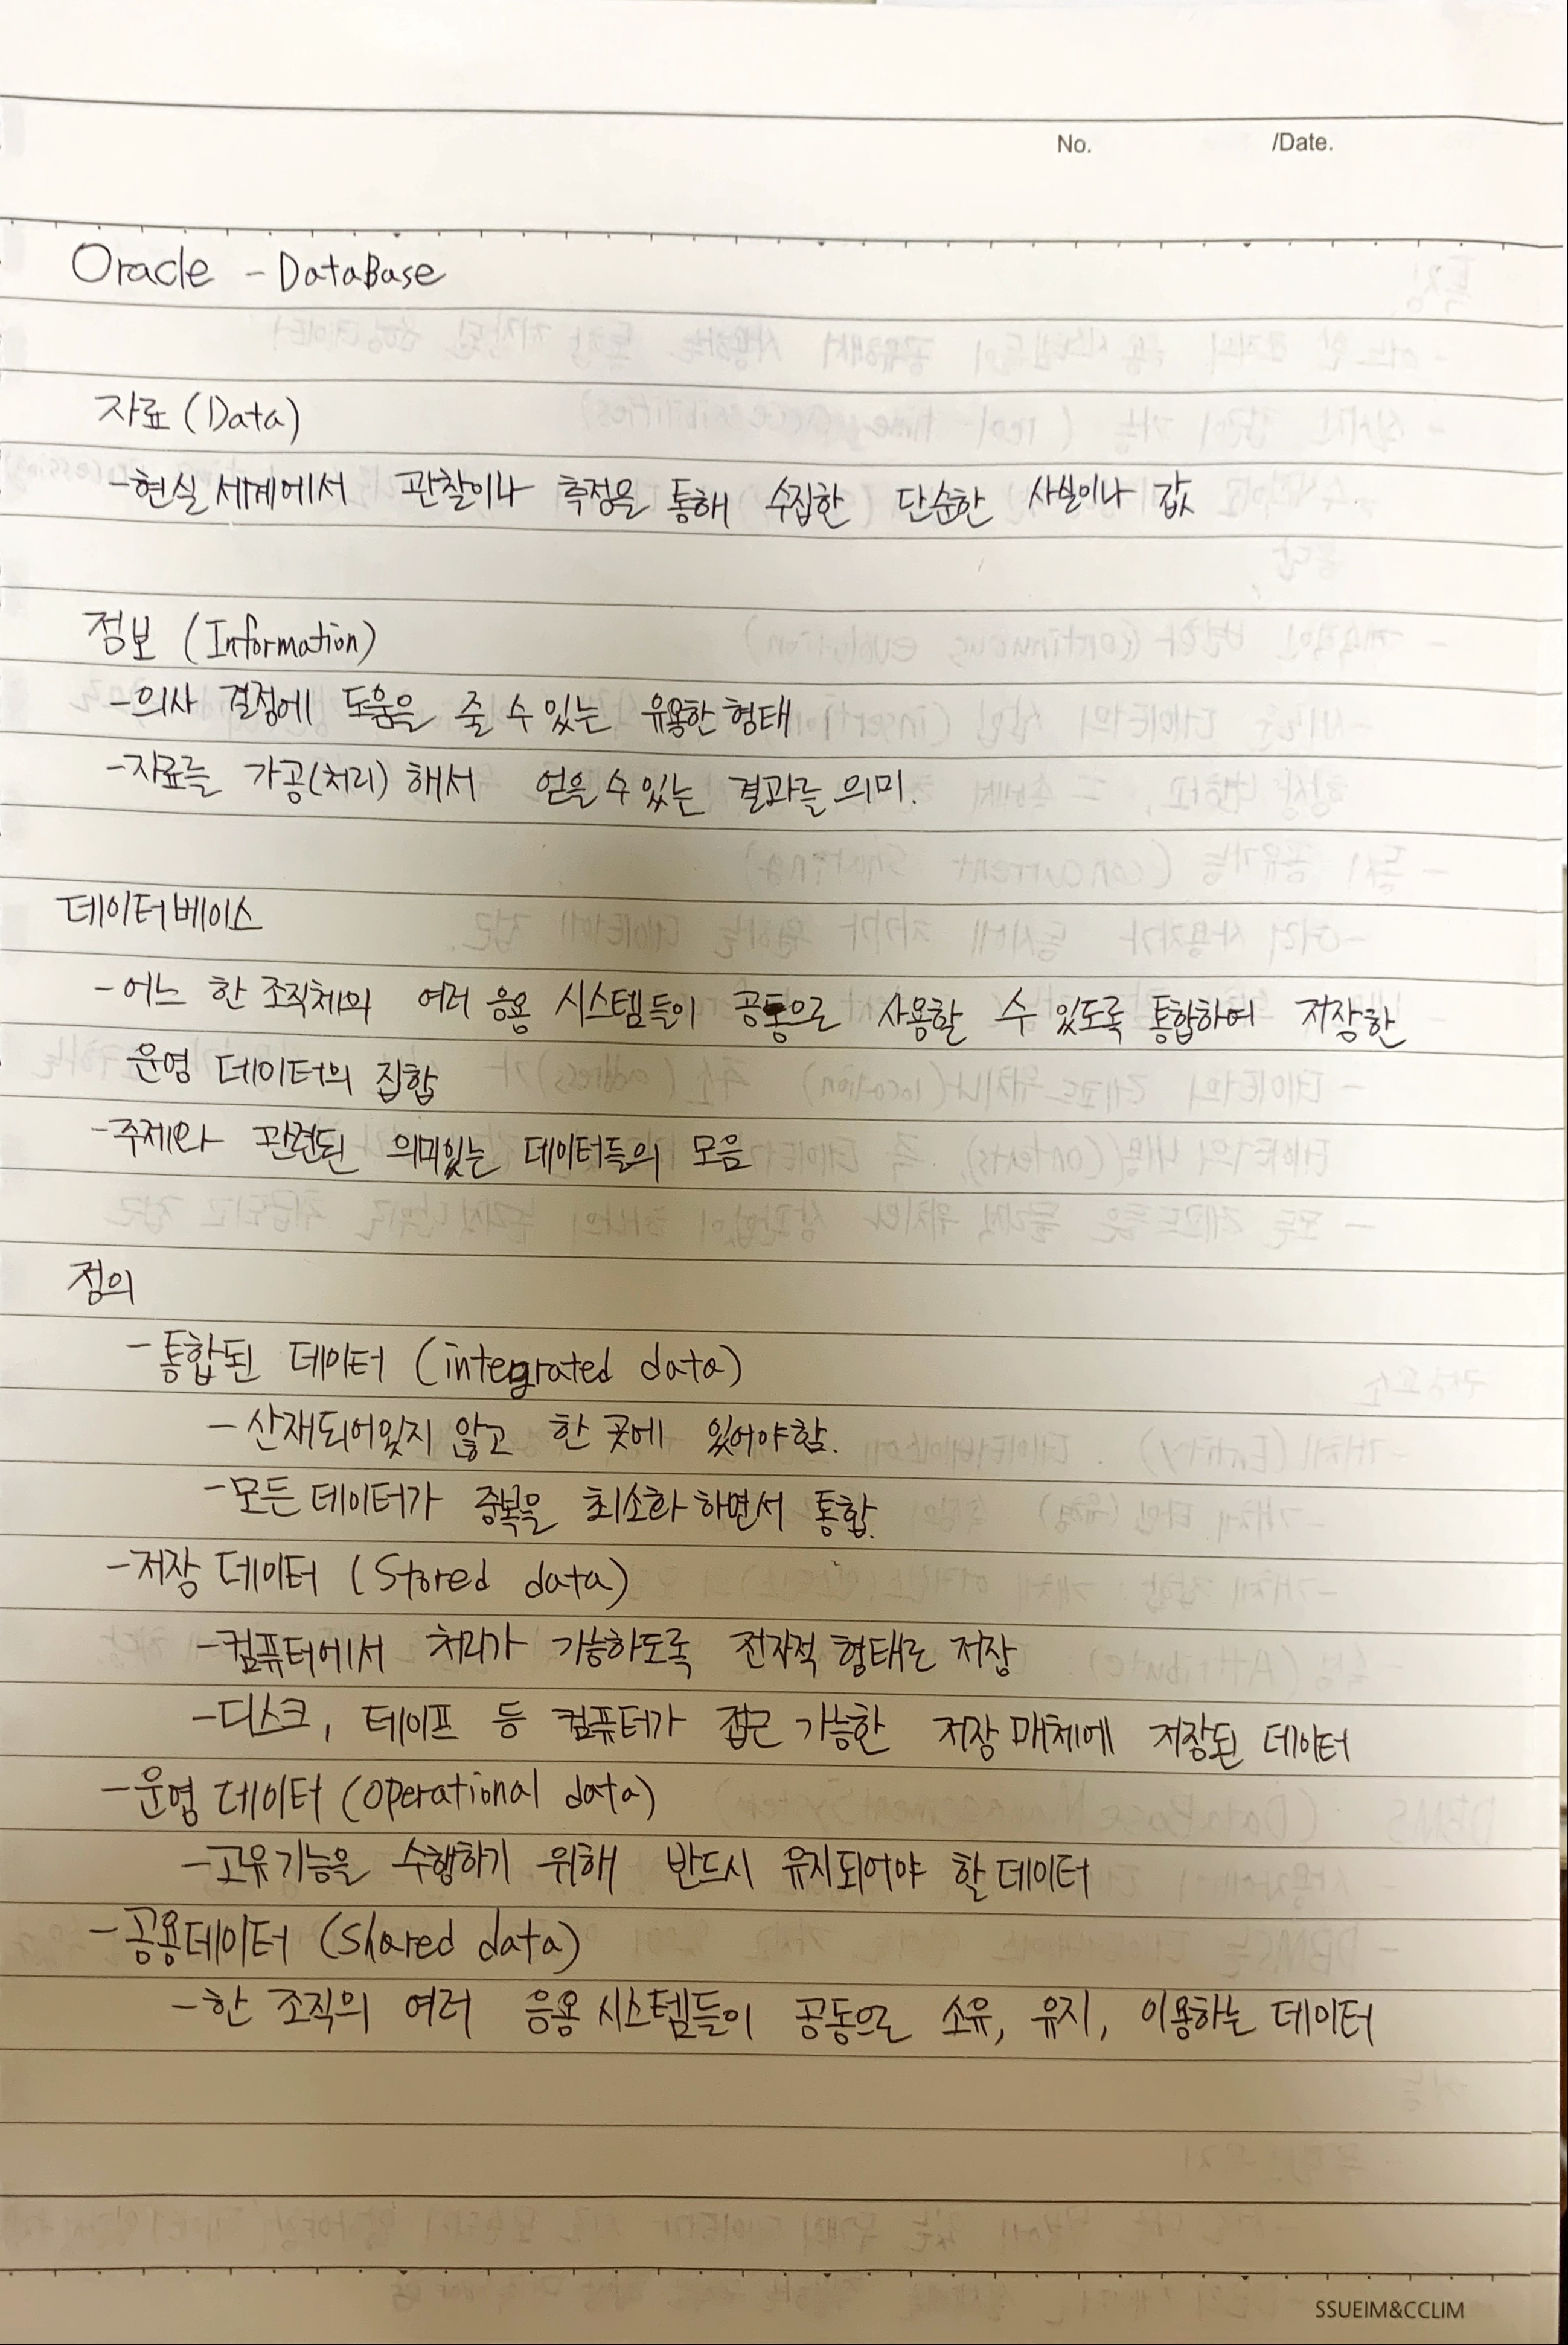 No. /Date.
Oracle - DataBase
자료 (Data)
- 현실 세계에서 관찰이나 측정을 통해 수집한 단순한 사실이나 값
정보 (Information)
- 의사 결정에 도움을 줄 수 있는 유용한 형태
- 자료를 가공(처리) 해서 얻을 수 있는 결과를 의미.
데이터베이스
- 어느 한 조직체의 여러 응용 시스템들이 공통으로 사용할 수 있도록 통합하여 저장한
운영 데이터의 집합
- 주제와 관련된 의미있는 데이터들의 모음
정의
- 통합된 데이터 (integrated data)
- 산재되어있지 않고 한 곳에 있어야함.
- 모든 데이터가 중복을 최소화 하면서 통합.
- 저장 데이터 (Stored data)
- 컴퓨터에서 처리가 가능하도록 전자적 형태로 저장
- 디스크, 테이프 등 컴퓨터가 접근 가능한 저장 매체에 저장된 데이터
- 운영 데이터 (operational data)
- 고유기능을 수행하기 위해 반드시 유지되어야 할 데이터
- 공용데이터 (Shared data)
- 한 조직의 여러 응용 시스템들이 공동으로 소유, 유지, 이용하는 데이터
SSUEIM&CCLIM